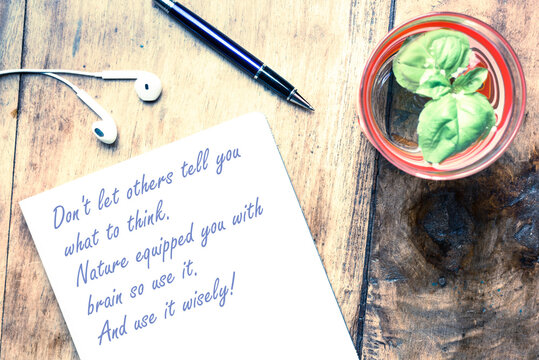 Don't let others tell you
what to think.
Nature equipped you with
brain so use it.
And use it wisely!